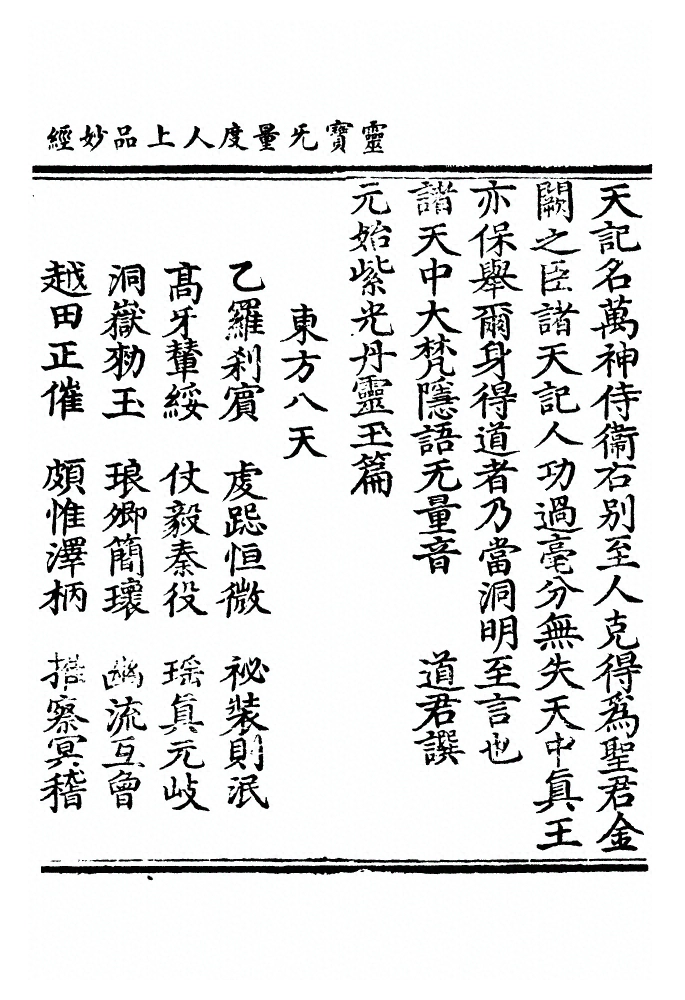 靈寶无量度人上品妙經
天記名萬神侍衞右別至人克得爲聖君金
闕之臣諸天記人功過毫分無失天中眞王
亦保舉爾身得道者乃當洞明至言也
諸天中大梵隱語无量音 道君譔
元始紫光丹靈玉篇
東方八天
乙羅刹濱 虔跽恒微 祕裝則泯
髙牙輦綏 仗毅秦役 瑶眞元岐
洞嶽勑玉 琅卿簡瓌 幽流互會
越田正催 頗惟澤柄 措察冥稽